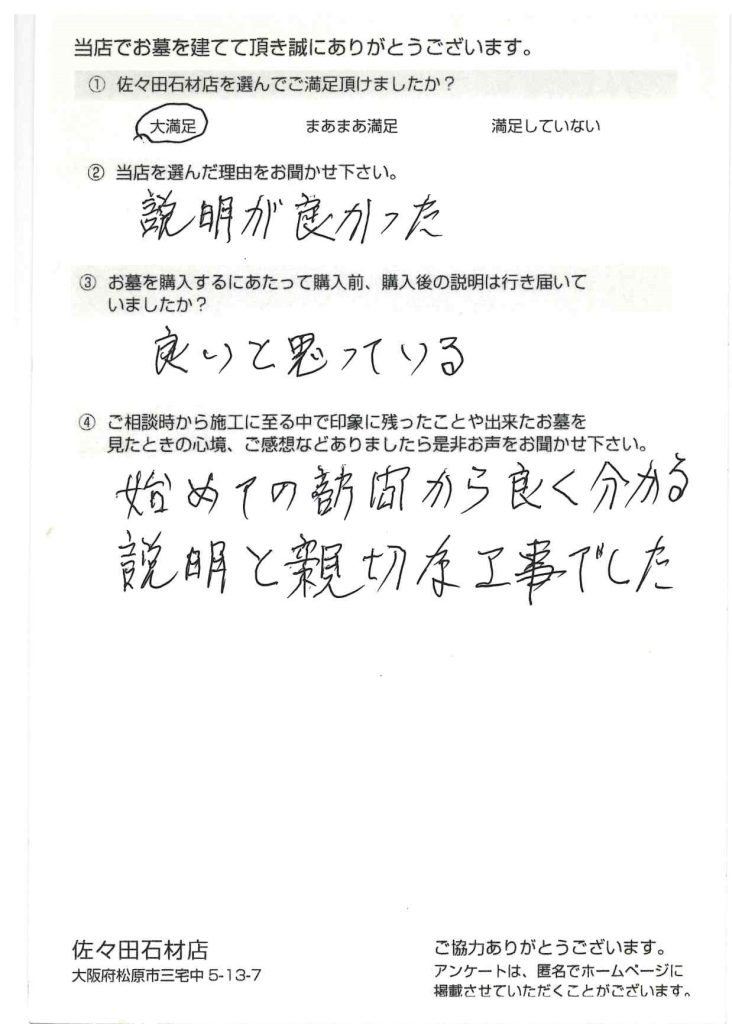 当店でお墓を建てて頂き誠にありがとうございます。
① 佐々田石材店を選んでご満足頂けましたか？
大満足 まあまあ満足 満足していない
② 当店を選んだ理由をお聞かせ下さい。
説明が良かった
③ お墓を購入するにあたって購入前、購入後の説明は行き届いて
いましたか？
良いと思っている
④ ご相談時から施工に至る中で印象に残ったことや出来たお墓を
見たときの心境、ご感想などありましたら是非お声をお聞かせ下さい。
始めての訪問から良く分かる
説明と親切な工事でした
佐々田石材店
大阪府松原市三宅中 5-13-7
ご協力ありがとうございます。
アンケートは、匿名でホームページに
掲載させていただくことがございます。